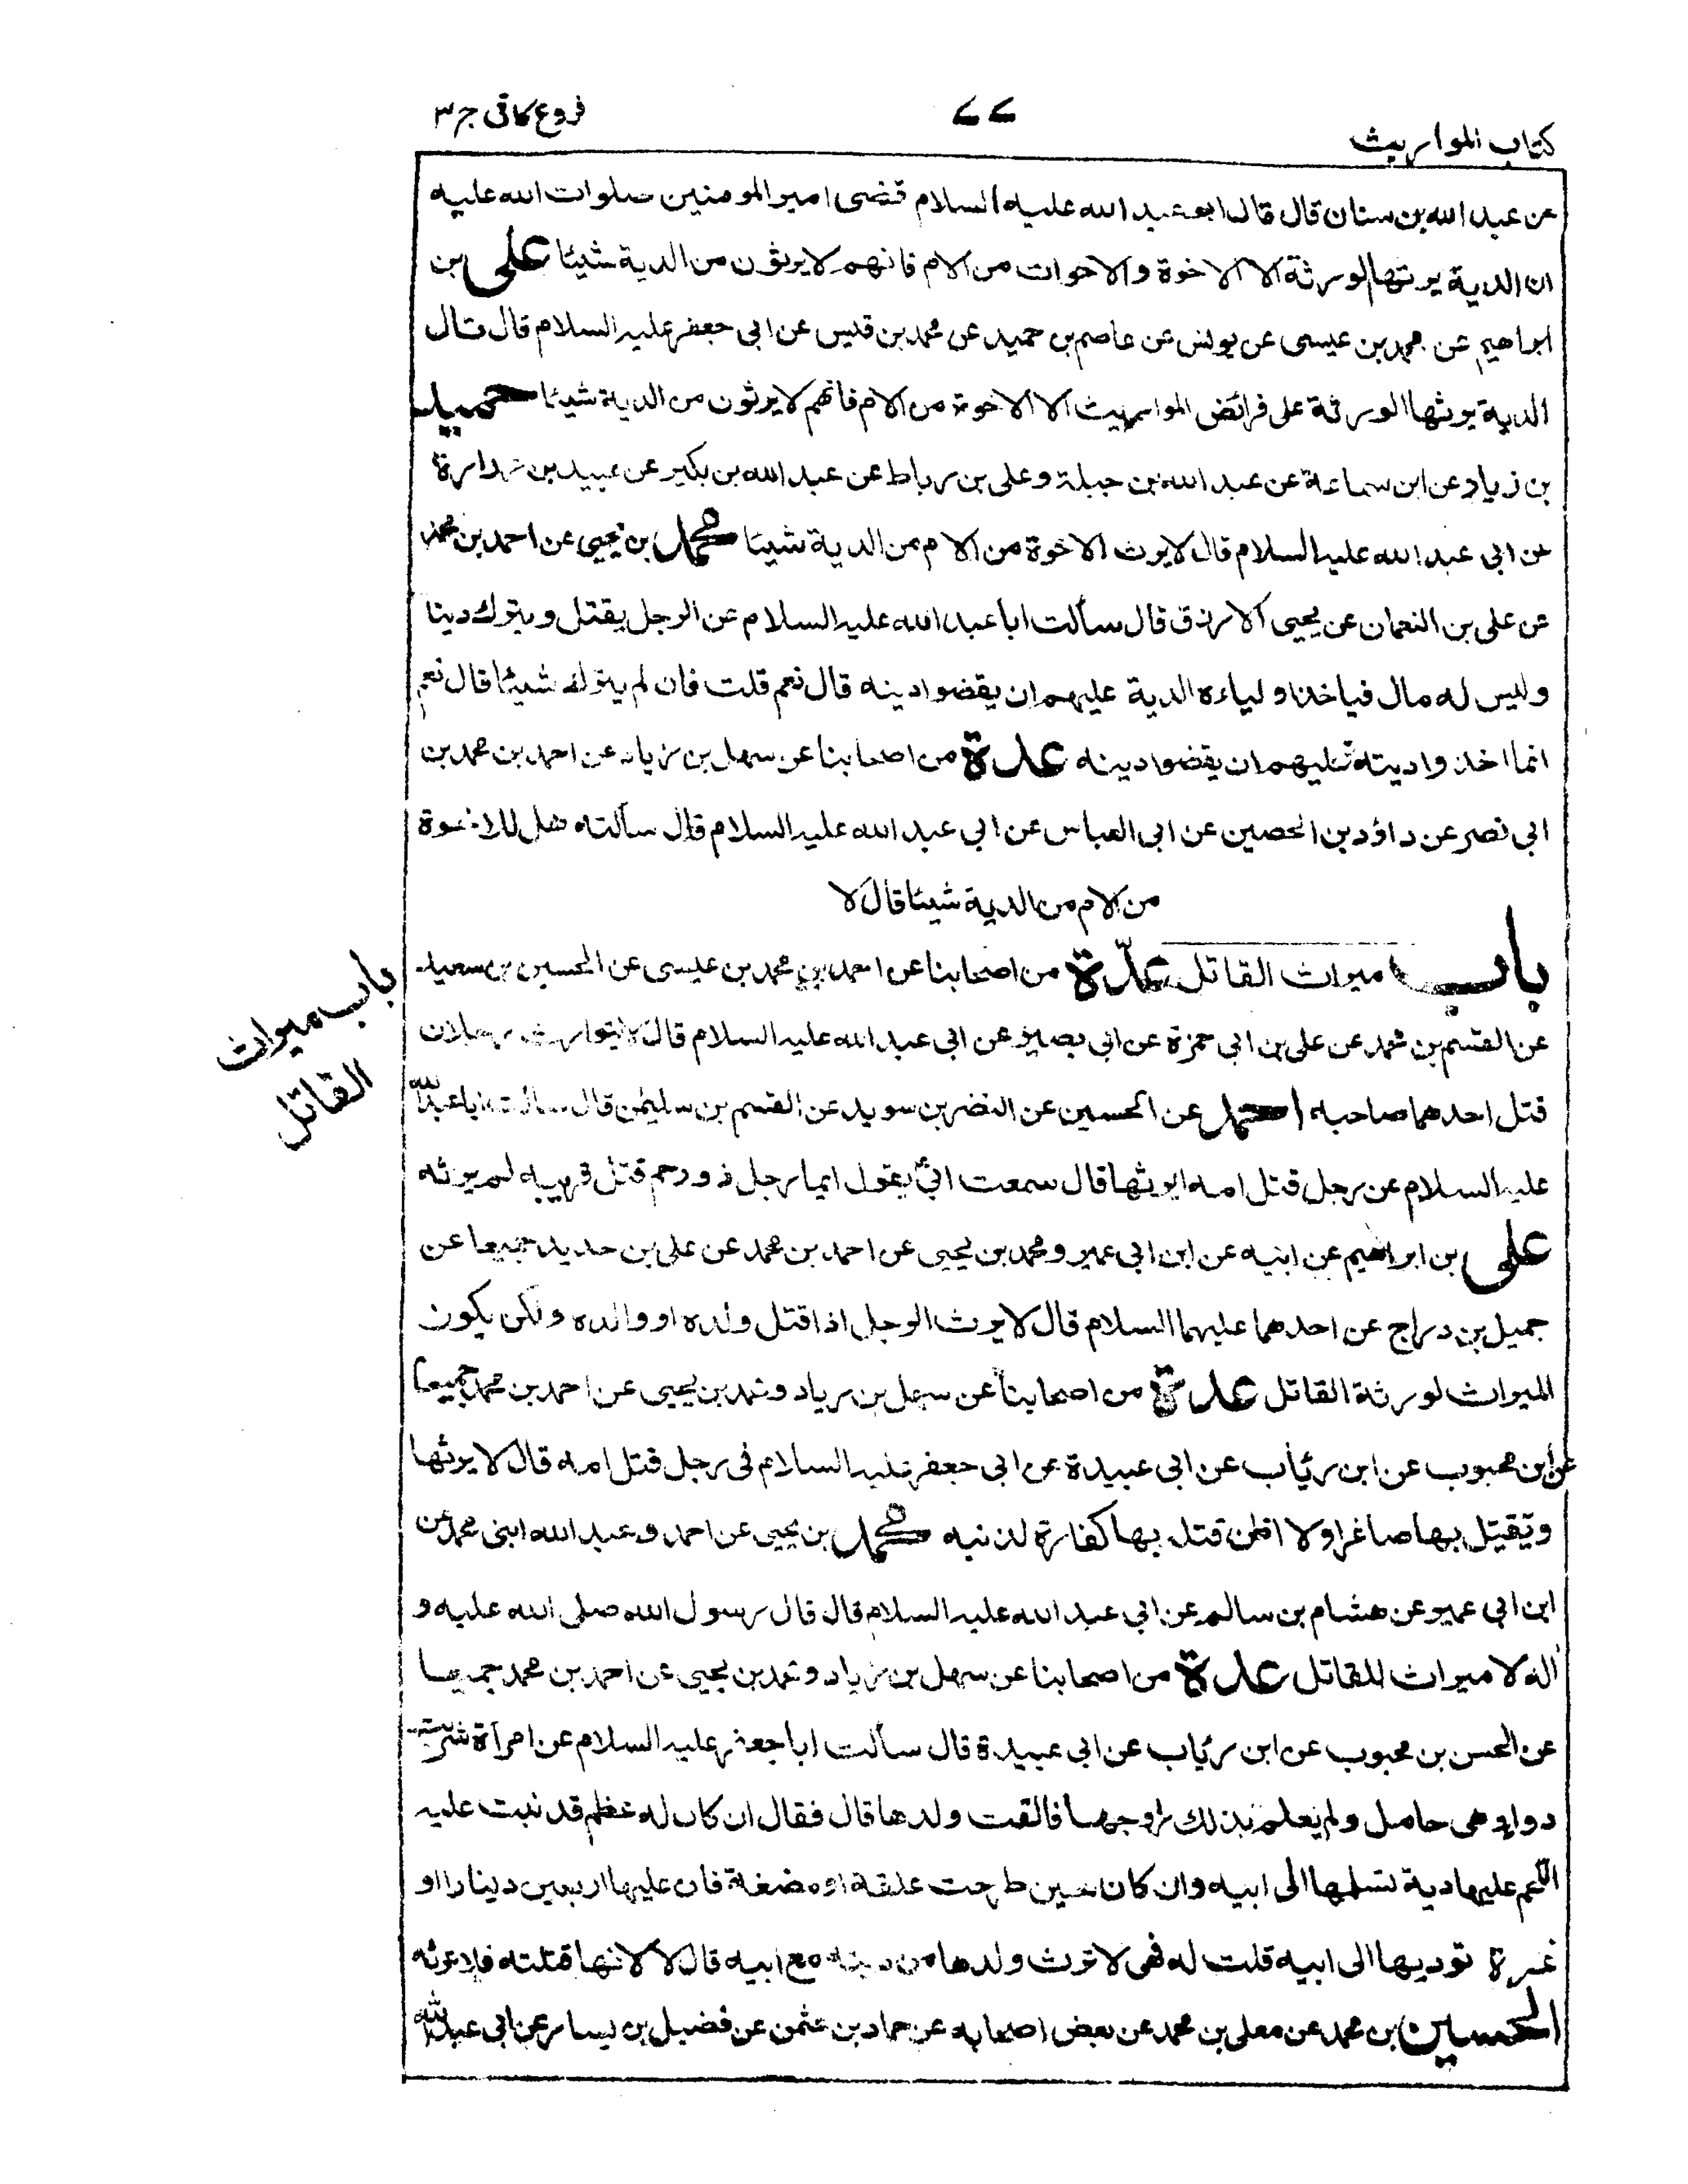 كتاب المواريث
٧٧
فروع كافى ج ٣
عن عبد الله بن سنان قال قال ابو عبد الله عليه السلام قضى امير المومنين صلوات الله عليه
ان الدية يرثها الورثة الا الاخوة والاخوات من الام فانهم لا يرثون من الدية شيئا على بن
ابراهيم عن محمد بن عيسى عن يونس عن عاصم بن حميد عن محمد بن قيس عن ابى جعفر عليه السلام قال قال
الدية يرثها الورثة على فرائض المواريث الا الاخوة من الام فانهم لا يرثون من الدية شيئا حميد
بن زياد عن ابن سماعة عن عبد الله بن جبلة وعلى بن رباط عن عبد الله بن بكير عن عبيد بن زرارة
عن ابى عبد الله عليه السلام قال لا يرث الاخوة من الام من الدية شيئا محمد بن يحيى عن احمد بن محمد
عن على بن النعمان عن يحيى الازرق قال سألت ابا عبد الله عليه السلام عن الرجل يقتل ويترك دينا
وليس له مال فياخذ اولياءه الدية عليهم ان يقضوا دينه قال نعم قلت فان لم يترك شيئا قال نعم
انما اخذوا ديته عليهم ان يقضوا دينه عدة من اصحابنا عن سهل بن زياد عن احمد بن محمد بن
ابى نصر عن داؤد بن الحصين عن ابى العباس عن ابى عبد الله عليه السلام قال سألته هل للاخوة
من الام من الدية شيئا قال لا
باب ميراث القاتل عدّة من اصحابنا عن احمد بن محمد بن عيسى عن الحسين بن سعيد
عن القسم بن محمد عن على بن ابى حمزة عن ابى بصير عن ابى عبد الله عليه السلام قال لا يتوارث رجلان
قتل احدهما صاحبه احمد عن الحسين عن النضر بن سويد عن القسم بن سليمن قال سألت ابا عبد الله
عليه السلام عن رجل قتل امه ايرثها قال سمعت ابى يقول ايما رجل ذو رحم قتل قريبه لم يرثه
على بن ابراهيم عن ابيه عن ابن ابى عمير ومحمد بن يحيى عن احمد بن محمد عن على بن حديد جميعا عن
جميل بن دراج عن احدهما عليهما السلام قال لا يرث الرجل اذا قتل ولده او والده ولكن يكون
الميراث لورثة القاتل عدة من اصحابنا عن سهل بن زياد ومحمد بن يحيى عن احمد بن محمد جميعا
عن ابن محبوب عن ابن رئاب عن ابى عبيدة عن ابى جعفر عليه السلام فى رجل قتل امه قال لا يرثها
ويقتل بها صاغرا ولا اظن قتله بها كفارة لذنبه محمد بن يحيى عن احمد وعبد الله ابنى محمد عن
ابن ابى عمير عن هشام بن سالم عن ابى عبد الله عليه السلام قال قال رسول الله صلى الله عليه و
اله لا ميراث للقاتل عدة من اصحابنا عن سهل بن زياد ومحمد بن يحيى عن احمد بن محمد جميعا
عن الحسن بن محبوب عن ابن رئاب عن ابى عبيدة قال سألت ابا جعفر عليه السلام عن امرأة شربت
دواء وهى حامل ولم يعلم بذلك زوجها فالقت ولدها قال فقال ان كان له عظم قد نبت عليه
اللحم عليها دية تسلمها الى ابيه وان كان حين طرحت علقة او مضغة فان عليها اربعين دينارا او
غرة توديها الى ابيه قلت له فهى لا ترث ولدها من ديته مع ابيه قال لا لانها قتلته فلا ترثه
الحسين بن محمد عن معلى بن محمد عن بعض اصحابه عن حماد بن عثمن عن فضيل بن يسار عن ابى عبد الله
باب ميراث
القاتل